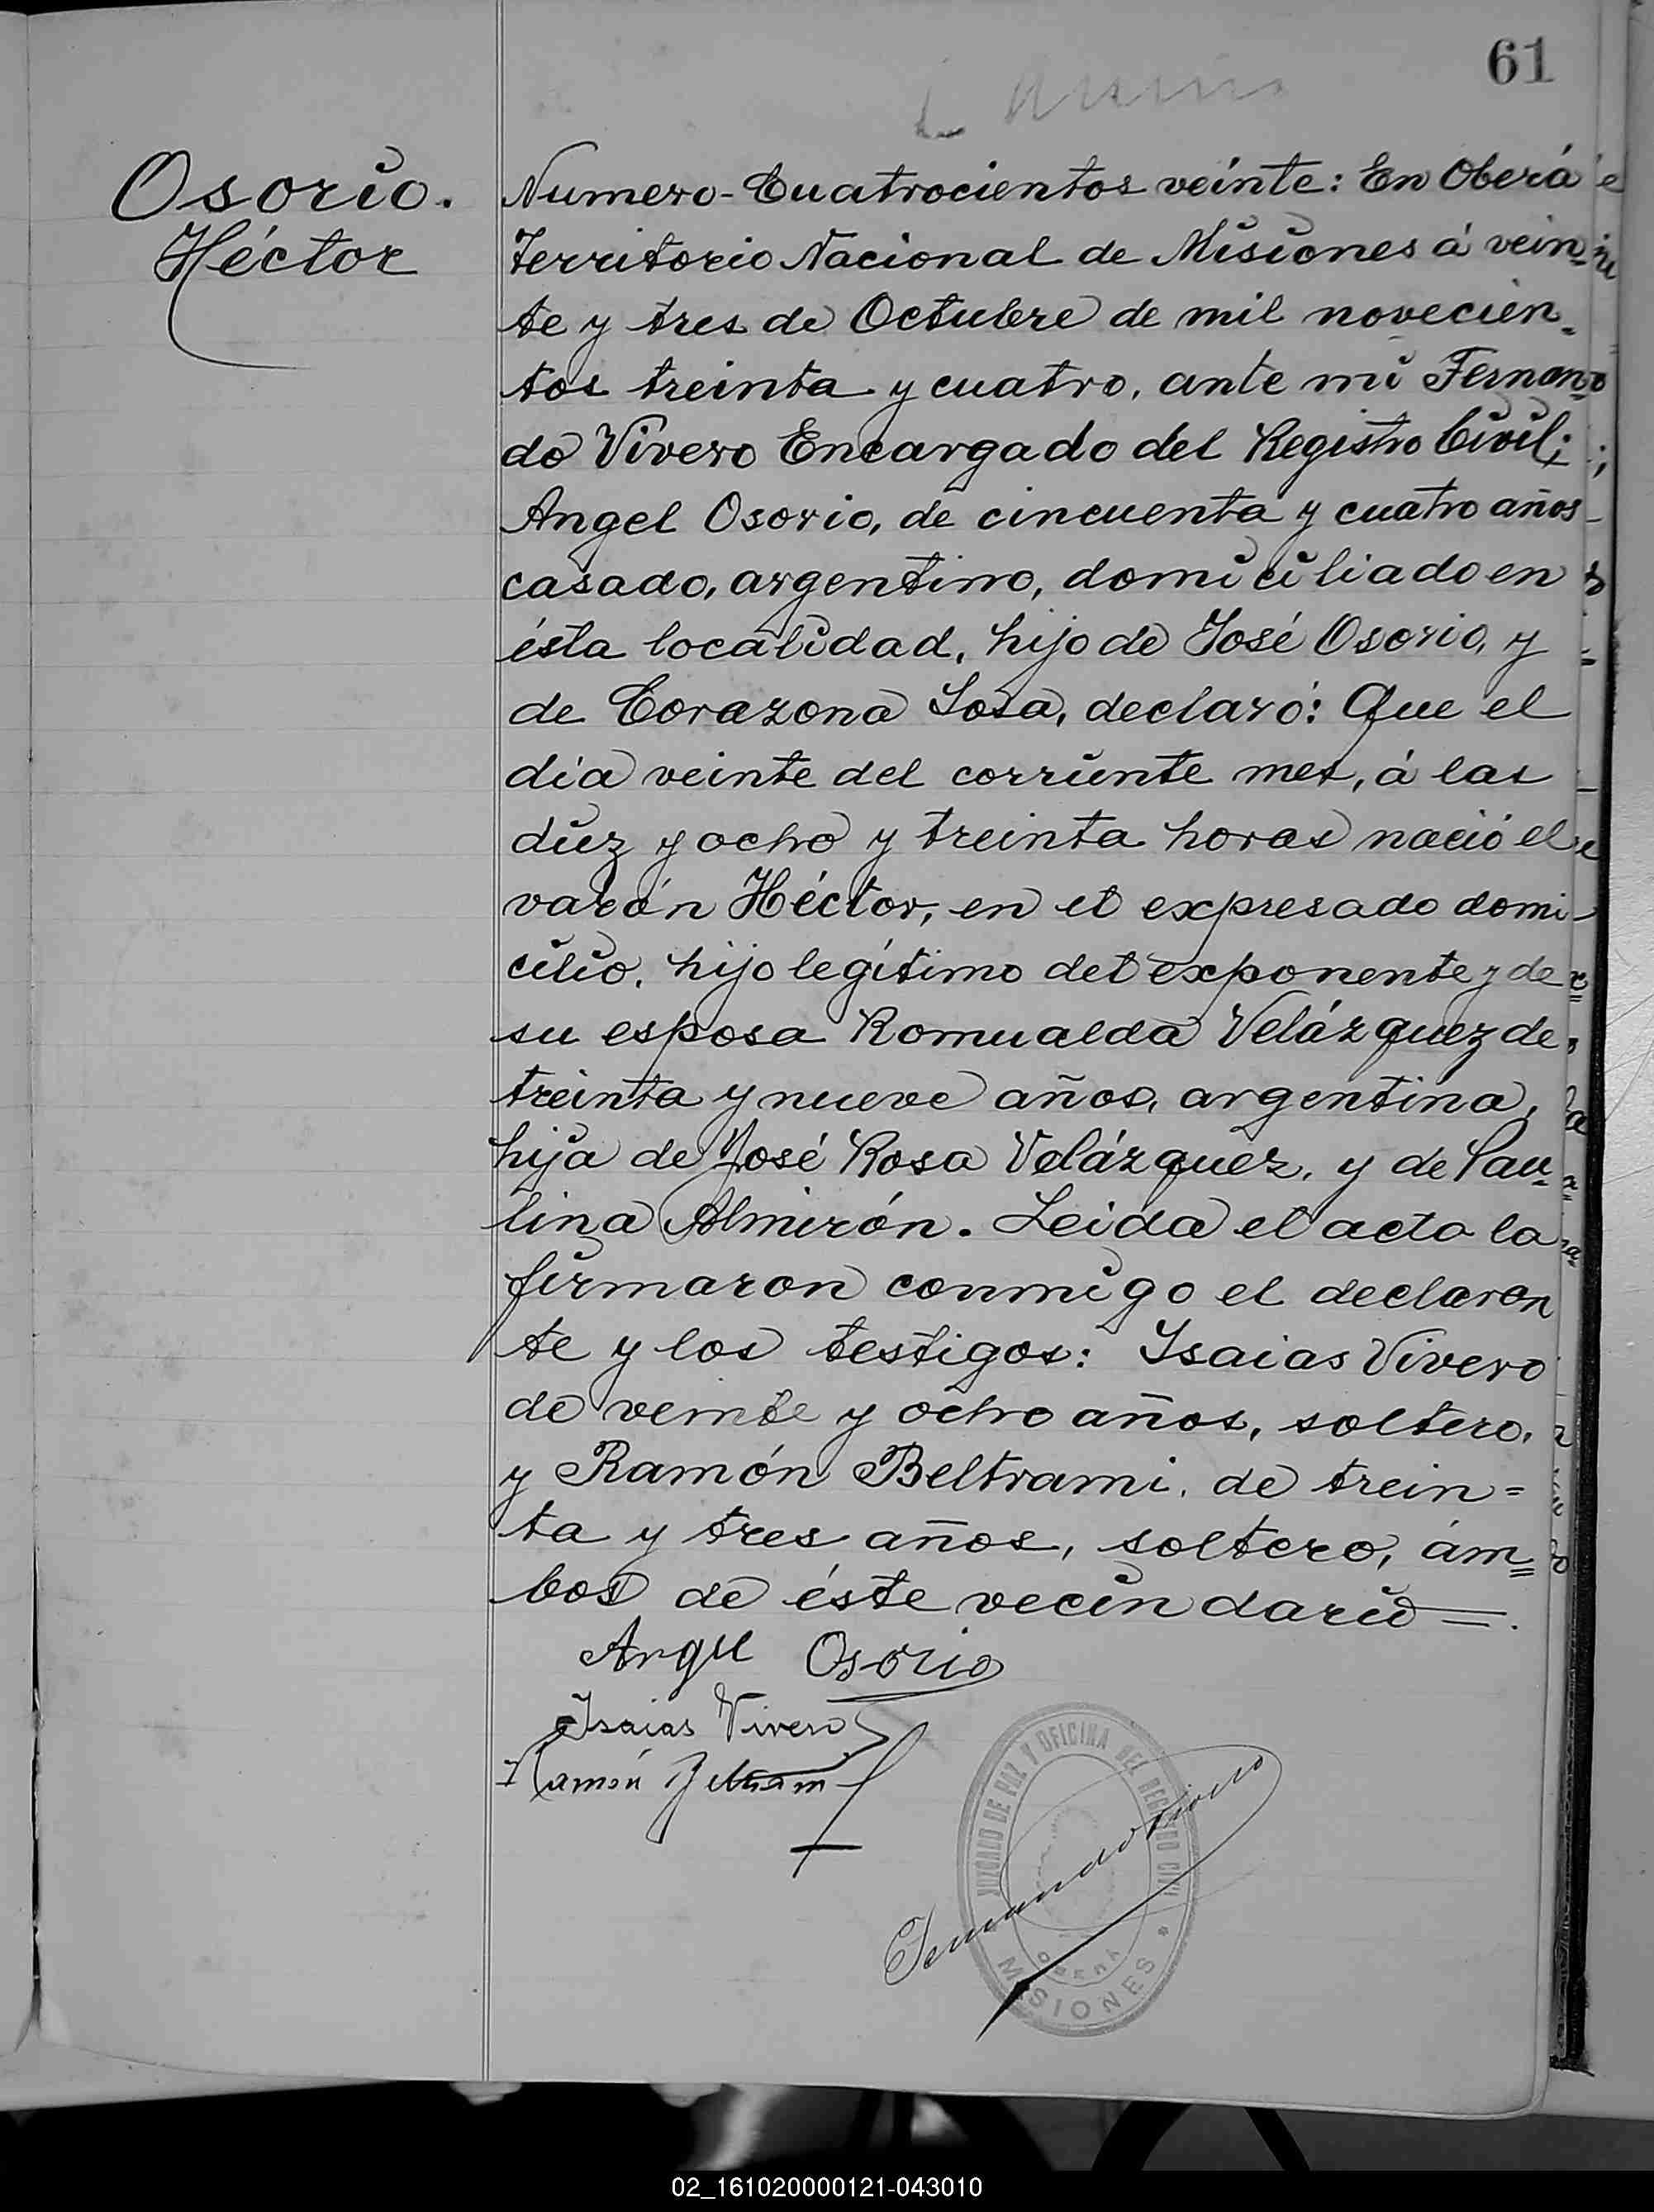 61
Osorio.
Héctor
Numero-Cuatrocientos veinte: En Oberá
Territorio Nacional de Misiones á vein-
te y tres de Octubre de mil novecien-
tos treinta y cuatro, ante mi Fernan-
do Vivero Encargado del Registro Civil;
Angel Osorio, de cincuenta y cuatro años
casado, argentino, domiciliado en
ésta localidad, hijo de José Osorio, y
de Corazona Sosa, declaró: Que el
día veinte del corriente mes, á las
diez y ocho y treinta horas nació el
varón Héctor, en el expresado domi-
cilio, hijo legítimo del exponente y de
su esposa Romualda Velázquez de
treinta y nueve años, argentina,
hija de José Rosa Velázquez, y de Pau-
lina Almirón. Leida el acta la
firmaron conmigo el declaran
te y los testigos: Isaias Vivero
de veinte y ocho años, soltero,
y Ramón Beltrami, de trein=
ta y tres años, soltero, ám=
bos de éste vecindario=.
Angel Osorio
Isaias Vivero
Ramón Beltrami
JUZGADO DE PAZ Y OFICINA DEL REGISTRO CIVIL
OBERA
MISIONES *
Fernando Vivero
02_161020000121-043010